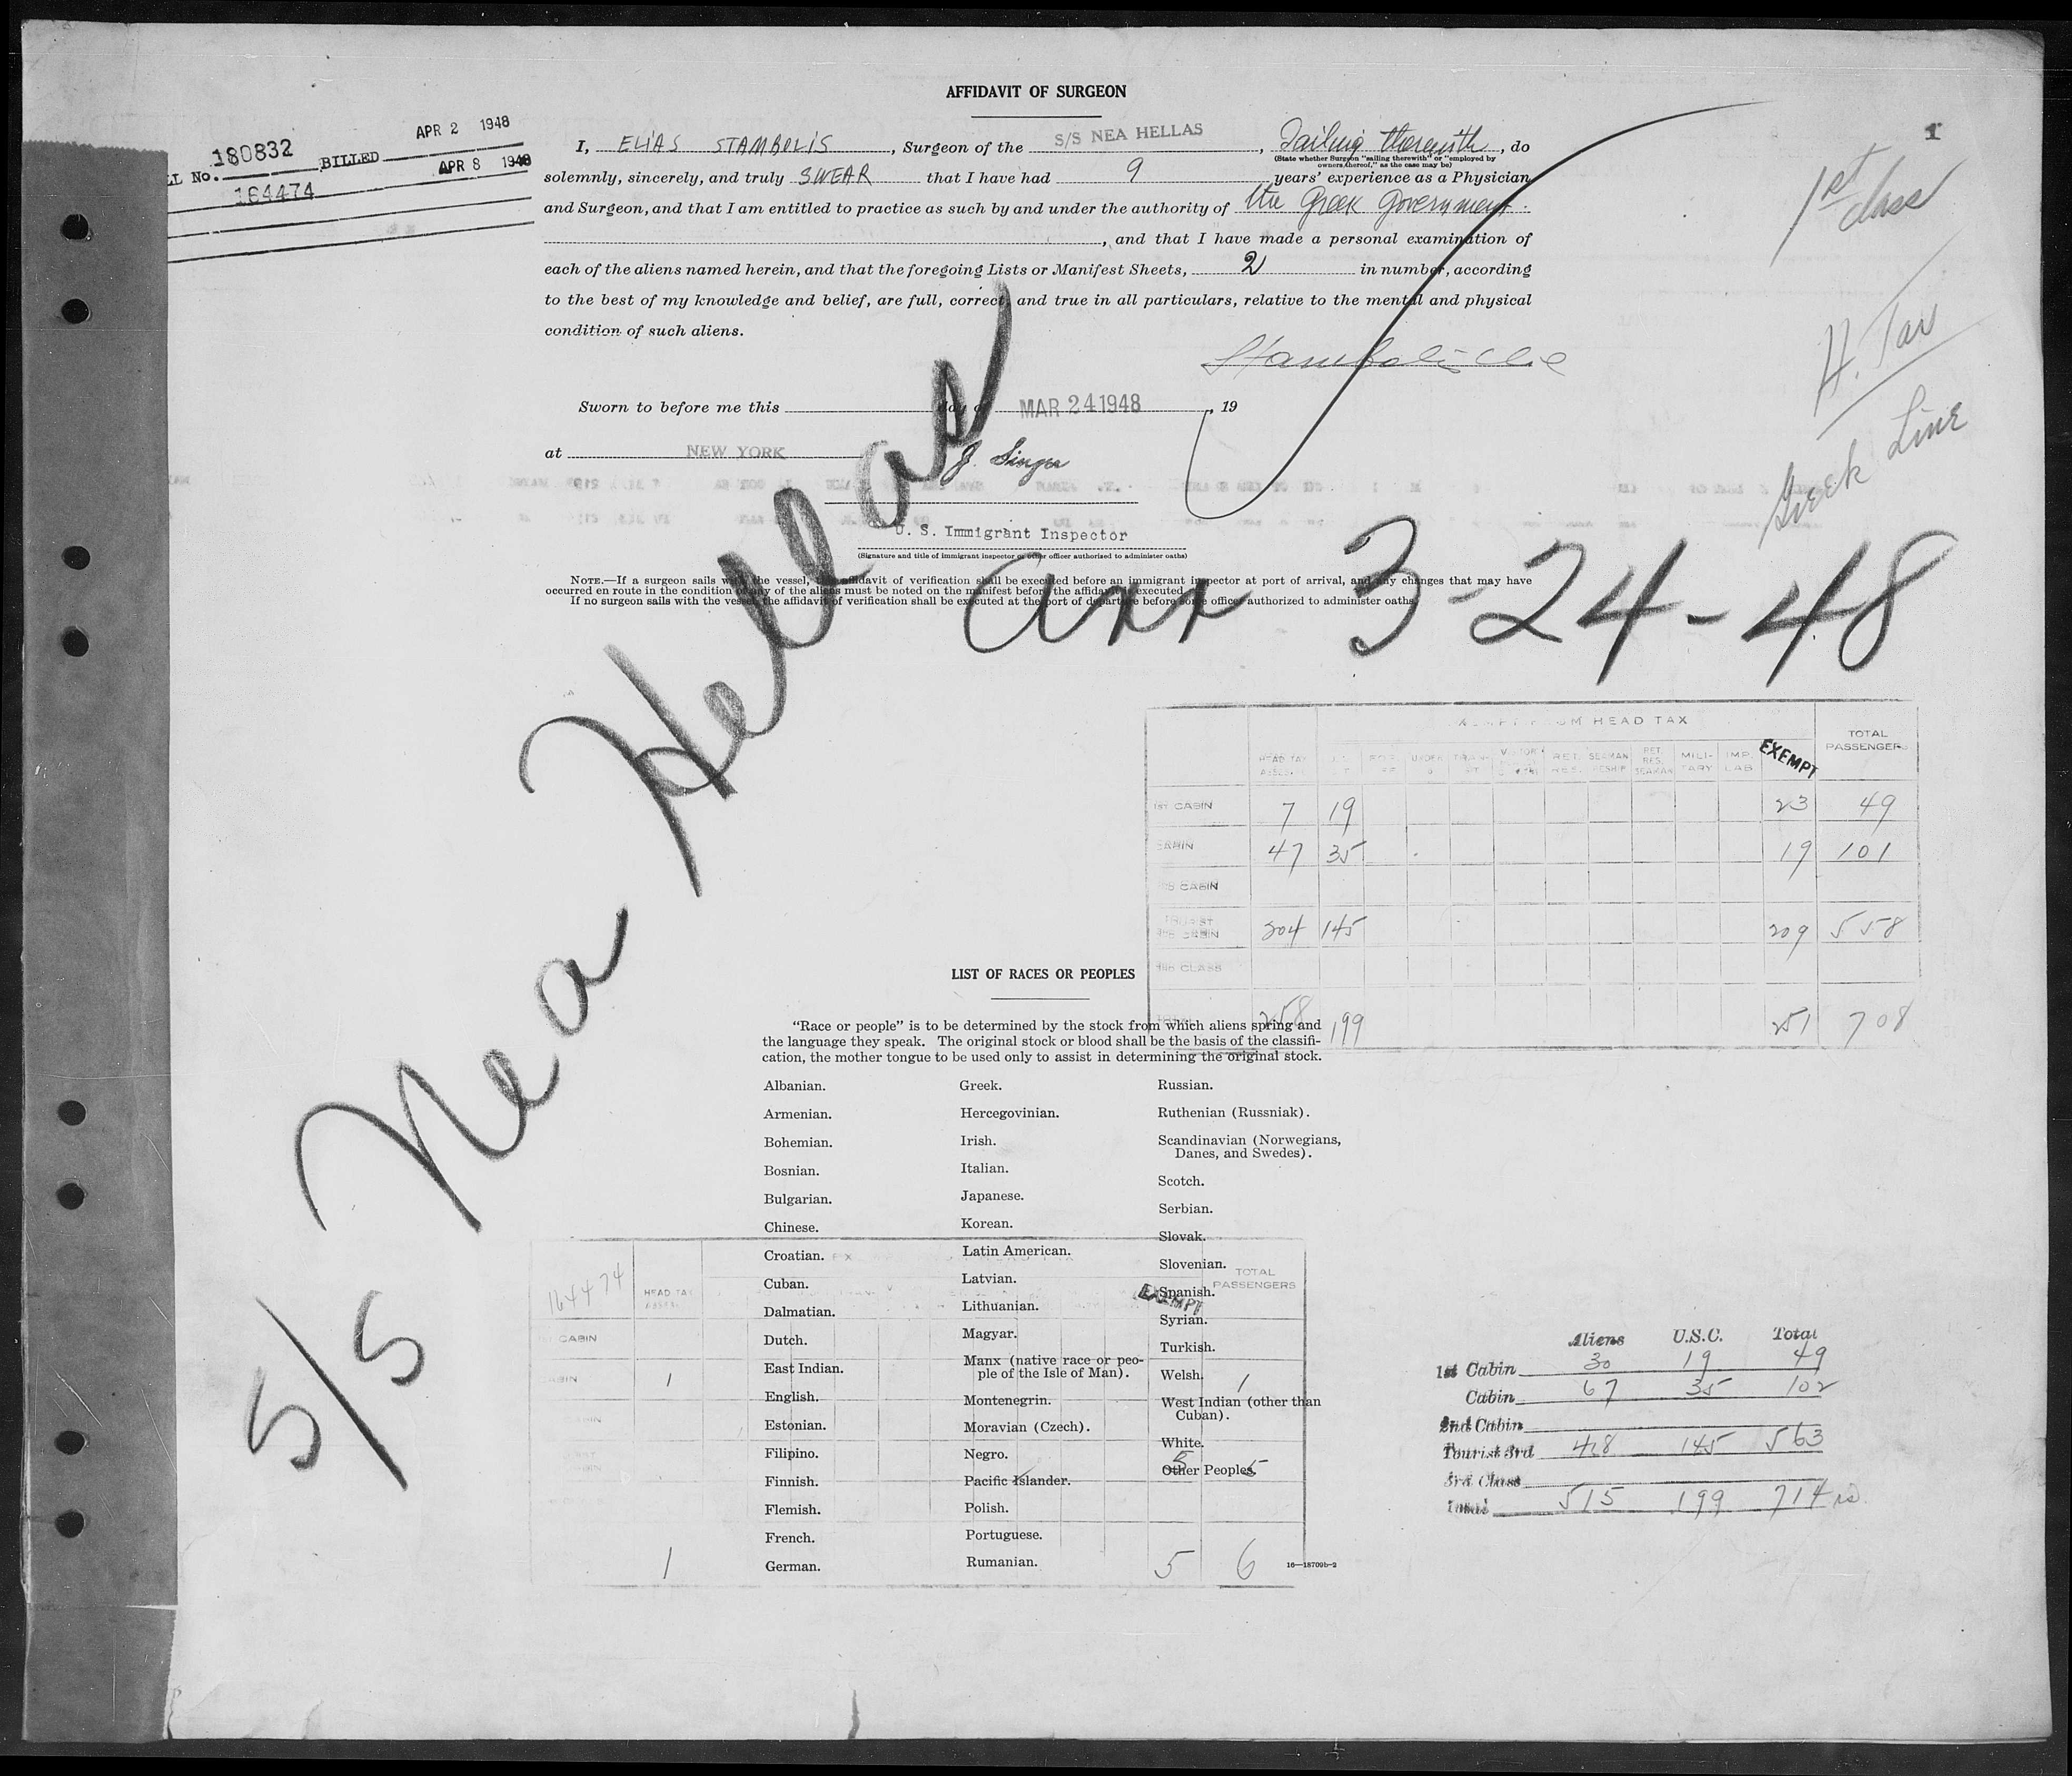 AFFIDAVIT OF SURGEON
1
180832 BILLED APR 2 1948
LL No. 164474 APR 8 1948
I, ELIAS STAMBOLIS, Surgeon of the S/S NEA HELLAS, Sailing therewith, do
(State whether Surgeon "sailing therewith" or "employed by
owners thereof," as the case may be)
solemnly, sincerely, and truly SWEAR that I have had 9 years' experience as a Physician
and Surgeon, and that I am entitled to practice as such by and under the authority of the Greek Government.
, and that I have made a personal examination of
each of the aliens named herein, and that the foregoing Lists or Manifest Sheets, 2 in number, according
to the best of my knowledge and belief, are full, correct, and true in all particulars, relative to the mental and physical
condition of such aliens.
1st class
H. Tax
Greek Line
Sworn to before me this day of MAR 24 1948, 19
at NEW YORK
J. Singer
U. S. Immigrant Inspector
(Signature and title of immigrant inspector or other officer authorized to administer oaths)
NOTE.—If a surgeon sails with the vessel, the affidavit of verification shall be executed before an immigrant inspector at port of arrival, and any changes that may have
occurred en route in the condition of any of the aliens must be noted on the manifest before the affidavit is executed.
If no surgeon sails with the vessel, the affidavit of verification shall be executed at the port of departure before some officer authorized to administer oaths.
S/S Nea Hellas
arr 3-24-48
EXEMPT FROM HEAD TAX
HEAD TAX RET. RES. SEAMAN RET. RES. SEAMAN MILITARY IMP. LAB. EXEMPT TOTAL PASSENGERS
1ST CABIN 7 19 23 49
CABIN 47 35 19 101
CABIN
CABIN 204 145 209 558
CLASS
258 199 251 708
LIST OF RACES OR PEOPLES
"Race or people" is to be determined by the stock from which aliens spring and
the language they speak. The original stock or blood shall be the basis of the classifi-
cation, the mother tongue to be used only to assist in determining the original stock.
Albanian.
Armenian.
Bohemian.
Bosnian.
Bulgarian.
Chinese.
Croatian.
Cuban.
Dalmatian.
Dutch.
East Indian.
English.
Estonian.
Filipino.
Finnish.
Flemish.
French.
German.
Greek.
Hercegovinian.
Irish.
Italian.
Japanese.
Korean.
Latin American.
Latvian.
Lithuanian.
Magyar.
Manx (native race or peo-
ple of the Isle of Man).
Montenegrin.
Moravian (Czech).
Negro.
Pacific Islander.
Polish.
Portuguese.
Rumanian.
Russian.
Ruthenian (Russniak).
Scandinavian (Norwegians,
Danes, and Swedes).
Scotch.
Serbian.
Slovak.
Slovenian.
Spanish.
Syrian.
Turkish.
Welsh.
West Indian (other than
Cuban).
White.
Other Peoples.
16—18709b-2
164474 HEAD TAX EXEMPT TOTAL PASSENGERS
CABIN
CABIN 1 1
5 5
1 5 6
Aliens U.S.C. Total
1st Cabin 30 19 49
Cabin 67 35 102
2nd Cabin
Tourist 3rd 418 145 563
3rd Class
Total 515 199 714